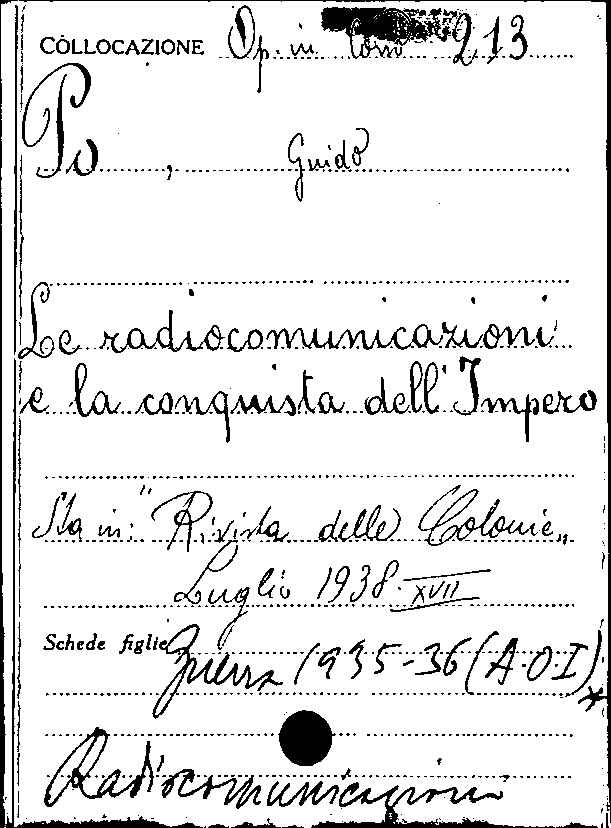 COLLOCAZIONE Op. in Cons 213
Po, Guido
Le radiocomunicazioni
e la conquista dell'Impero
Sta in: "Rivista delle Colonie„
Luglio 1938-XVII
Schede figlie Guerra 1935-36 (A.O.I)*
Radiocomunicazioni